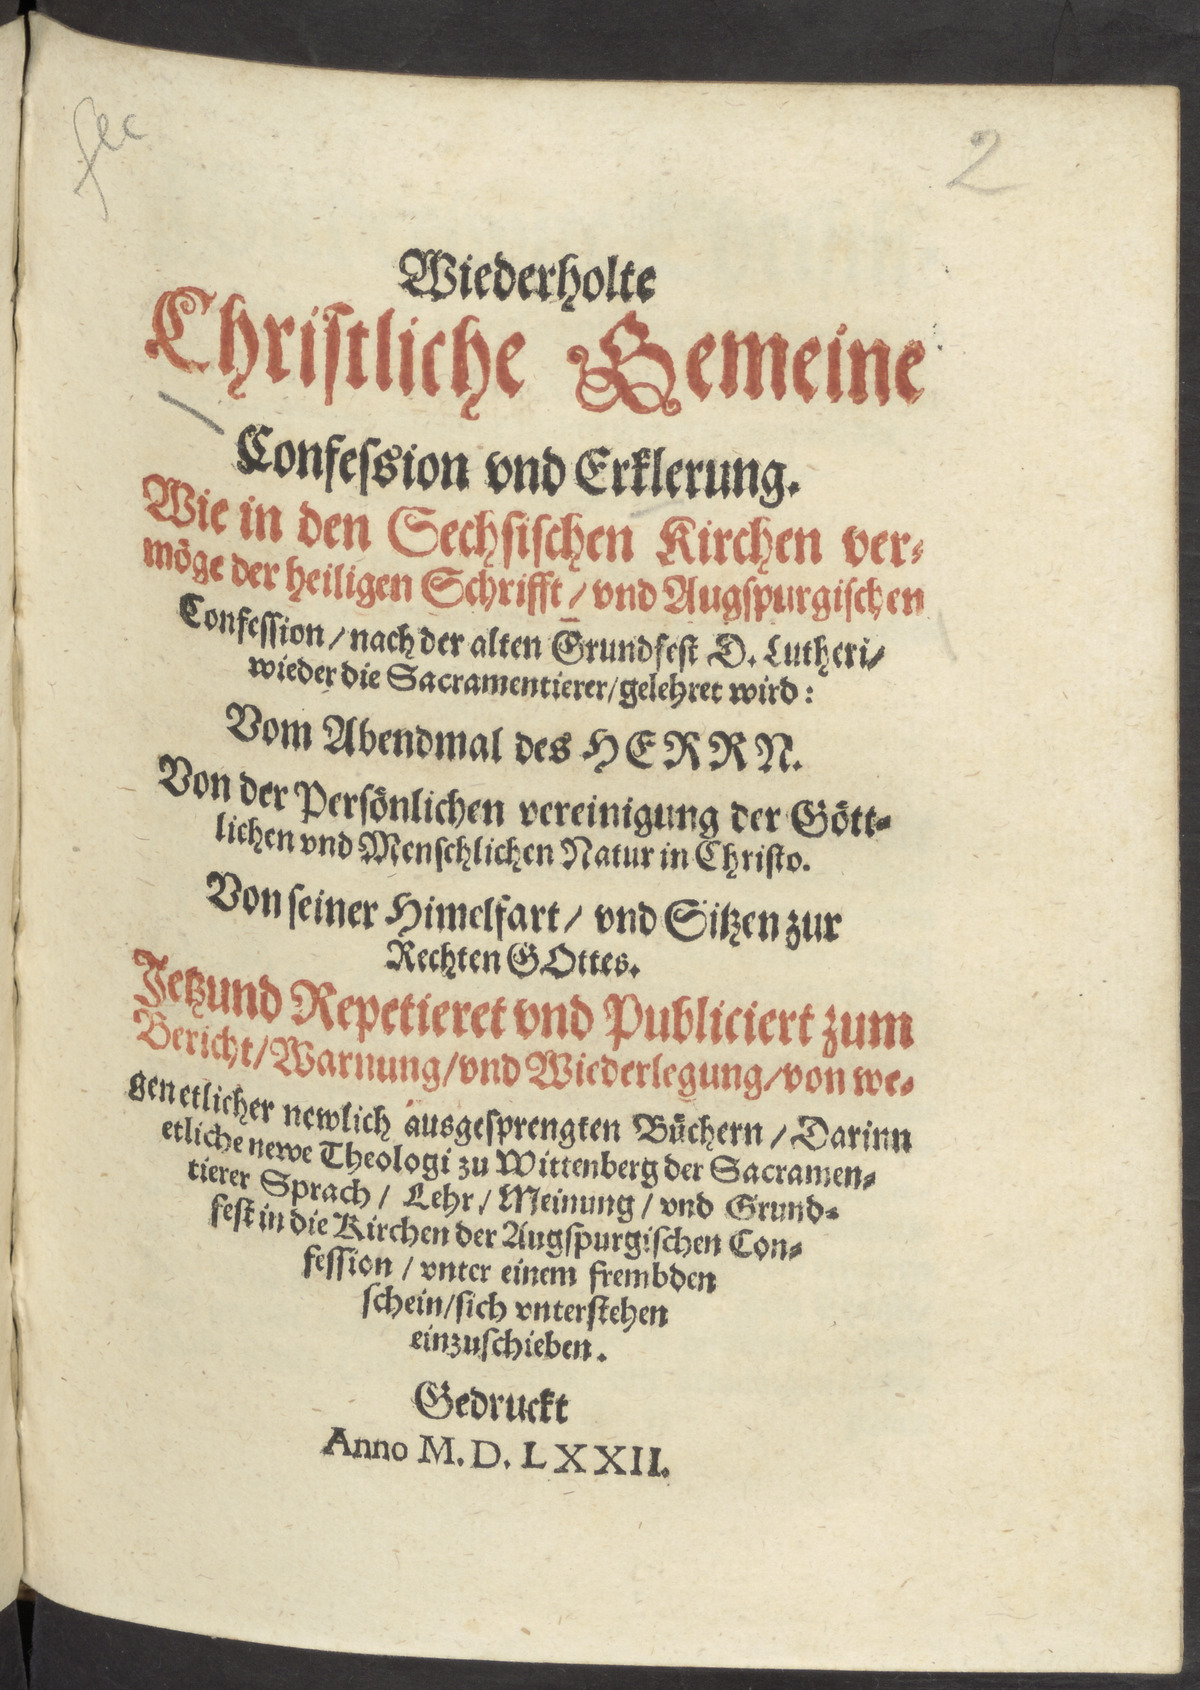 2
Wiederholte
Christliche Gemeine
Confession vnd Erklerung.
Wie in den Sechsischen Kirchen ver-
möge der heiligen Schrifft / vnd Augspurgischen
Confession / nach der alten Grundfest D. Lutheri /
wieder die Sacramentierer / gelehret wird :
Vom Abendmal des HERRN.
Von der Persönlichen vereinigung der Gött-
lichen vnd Menschlichen Natur in Christo.
Von seiner Himelfart / vnd Sitzen zur
Rechten GOttes.
Jetzund Repetieret vnd Publiciert zum
Bericht / Warnung / vnd Wiederlegung / von we-
gen etlicher newlich ausgesprengten Büchern / Darinn
etliche newe Theologi zu Wittenberg der Sacramen-
tierer Sprach / Lehr / Meinung / vnd Grund-
fest in die Kirchen der Augspurgischen Con-
fession / vnter einem frembden
schein / sich vnterstehen
einzuschieben.
Gedruckt
Anno M. D. LXXII.